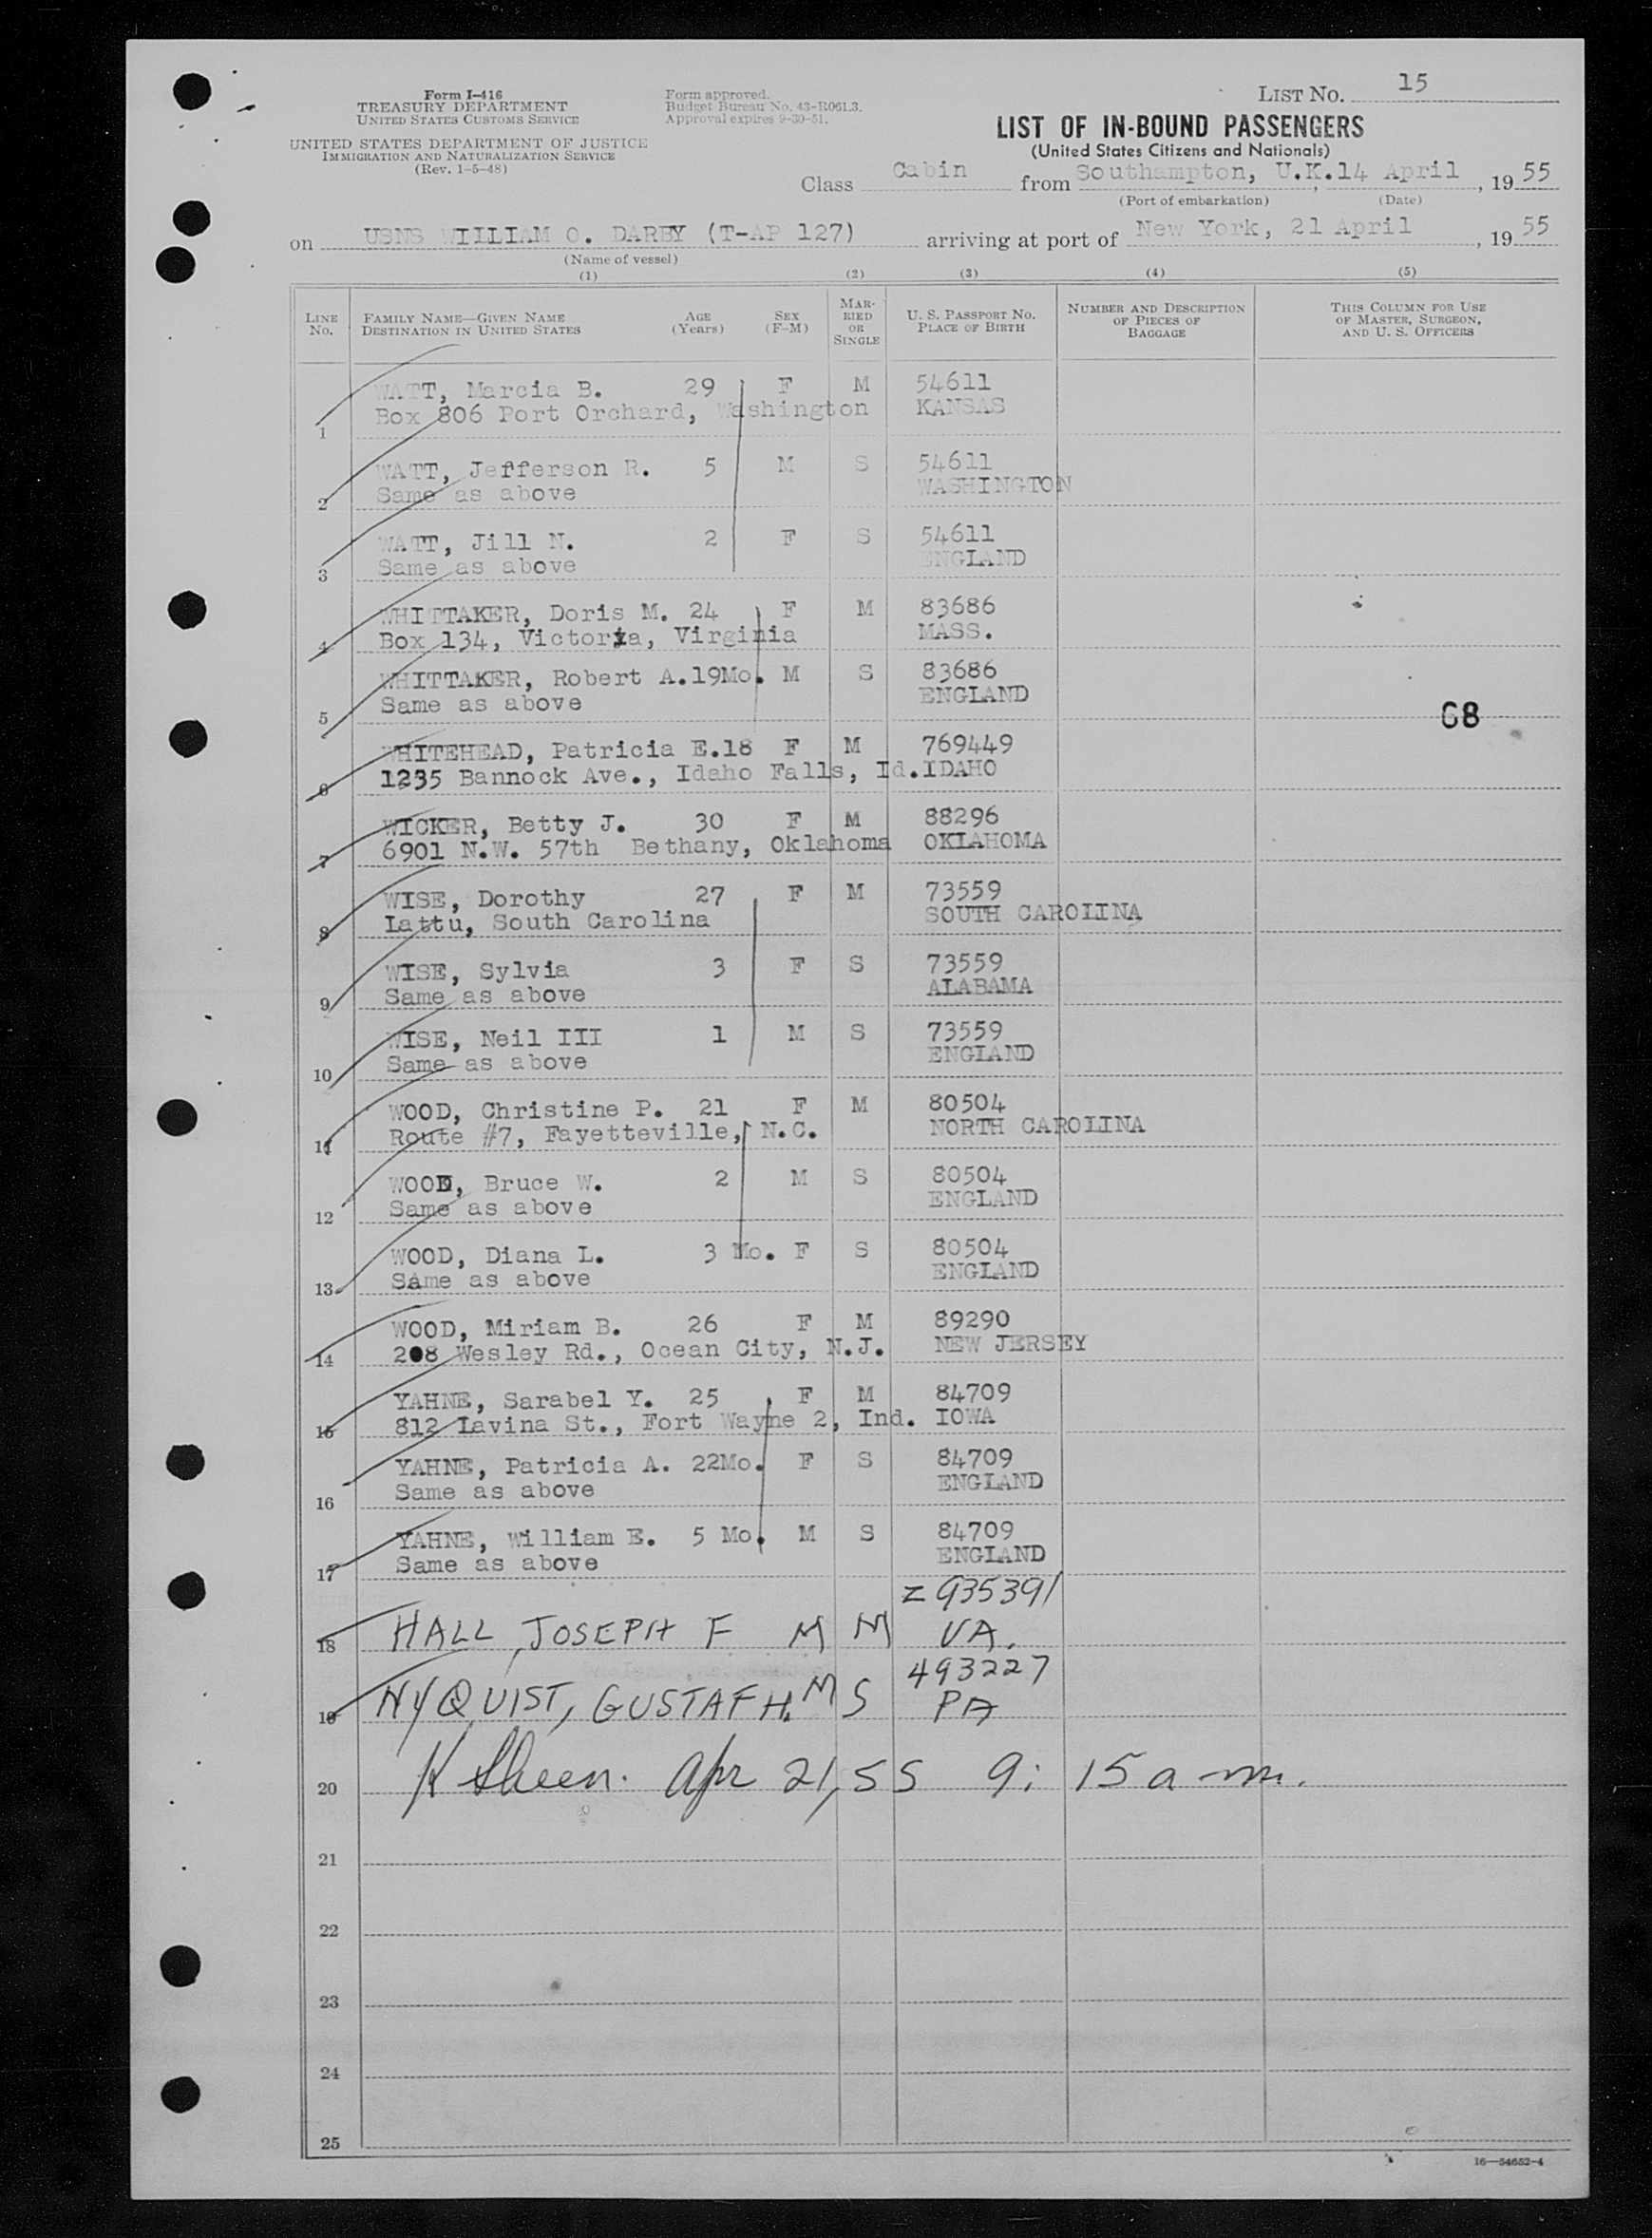 Form I-416
TREASURY DEPARTMENT
UNITED STATES CUSTOMS SERVICE
UNITED STATES DEPARTMENT OF JUSTICE
IMMIGRATION AND NATURALIZATION SERVICE
(Rev. 1-5-48)
Form approved.
Budget Bureau No. 43-R061.3.
Approval expires 9-30-51.
LIST NO. 15
LIST OF IN-BOUND PASSENGERS
(United States Citizens and Nationals)
Class Cabin from Southampton, U.K. 14 April, 1955
(Port of embarkation) (Date)
on USNS WILLIAM O. DARBY (T-AP 127) arriving at port of New York, 21 April, 1955
(Name of vessel)
(1) (2) (3) (4) (5)
LINE NO. FAMILY NAME—GIVEN NAME DESTINATION IN UNITED STATES AGE (Years) SEX (F-M) MARRIED OR SINGLE U. S. PASSPORT NO. PLACE OF BIRTH NUMBER AND DESCRIPTION OF PIECES OF BAGGAGE THIS COLUMN FOR USE OF MASTER, SURGEON, AND U. S. OFFICERS
WATT, Marcia B. 29 F M 54611
1 Box 806 Port Orchard, Washington KANSAS
WATT, Jefferson R. 5 M S 54611
2 Same as above WASHINGTON
WATT, Jill N. 2 F S 54611
3 Same as above ENGLAND
WHITTAKER, Doris M. 24 F M 83686
4 Box 134, Victoria, Virginia MASS.
WHITTAKER, Robert A. 19Mo. M S 83686
5 Same as above ENGLAND
68
WHITEHEAD, Patricia E. 18 F M 769449
6 1235 Bannock Ave., Idaho Falls, Id. IDAHO
WICKER, Betty J. 30 F M 88296
7 6901 N.W. 57th Bethany, Oklahoma OKLAHOMA
WISE, Dorothy 27 F M 73559
8 Lattu, South Carolina SOUTH CAROLINA
WISE, Sylvia 3 F S 73559
9 Same as above ALABAMA
WISE, Neil III 1 M S 73559
10 Same as above ENGLAND
WOOD, Christine P. 21 F M 80504
11 Route #7, Fayetteville, N.C. NORTH CAROLINA
WOOD, Bruce W. 2 M S 80504
12 Same as above ENGLAND
WOOD, Diana L. 3 Mo. F S 80504
13 Same as above ENGLAND
WOOD, Miriam B. 26 F M 89290
14 208 Wesley Rd., Ocean City, N.J. NEW JERSEY
YAHNE, Sarabel Y. 25 F M 84709
15 812 Lavina St., Fort Wayne 2, Ind. IOWA
YAHNE, Patricia A. 22Mo. F S 84709
16 Same as above ENGLAND
YAHNE, William E. 5 Mo. M S 84709
17 Same as above ENGLAND
Z 935391
18 HALL, JOSEPH F M M VA.
493227
19 NYQUIST, GUSTAF H. M S PA
20 K Sheen. Apr 21, 55 9:15 a m.
21
22
23
24
25
16—54652-4